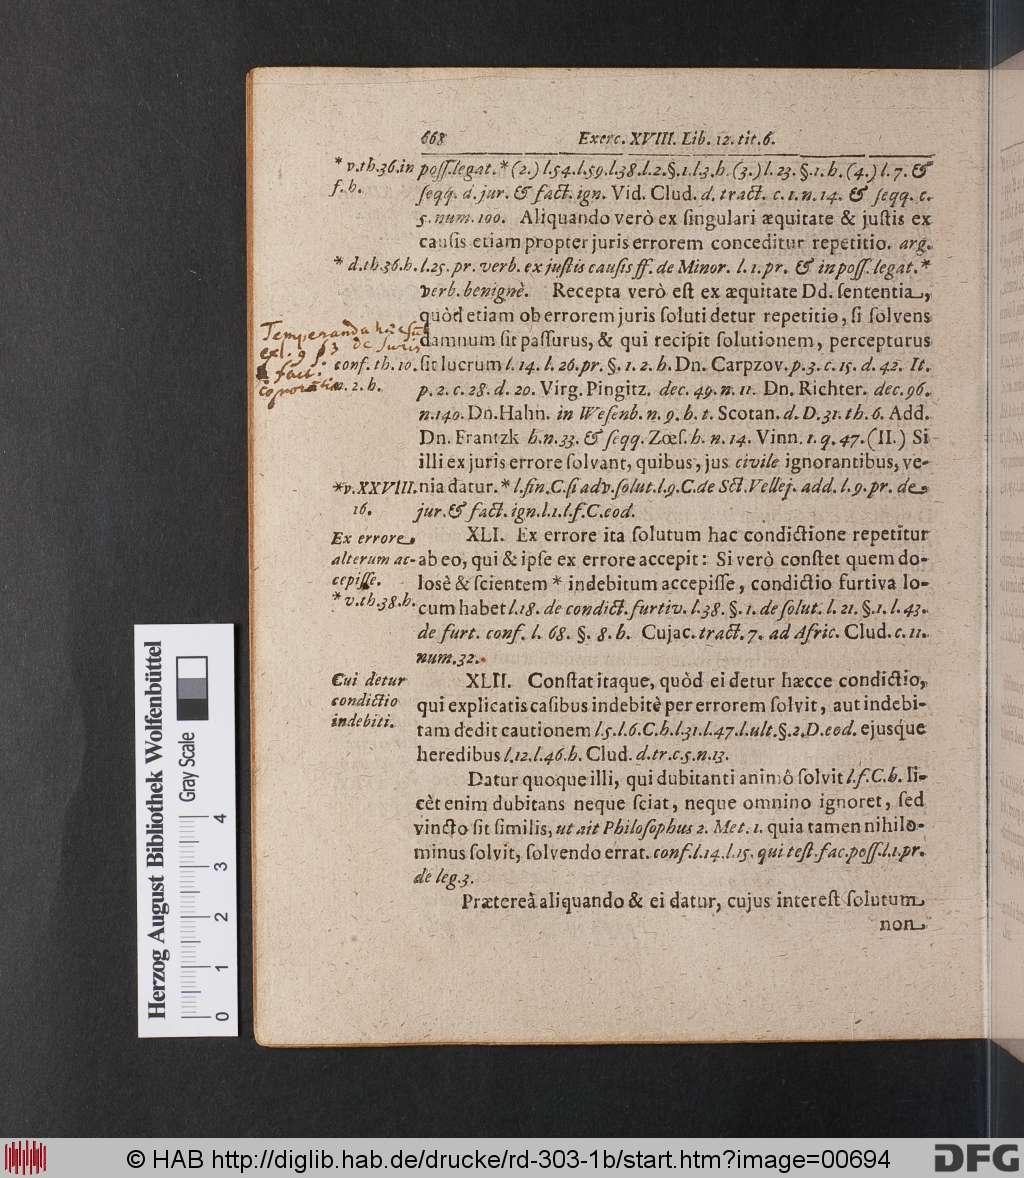 668 Exerc. XVIII. Lib. 12. tit. 6.
* v. th. 36. in poſſ. legat. * (2.) l. 54. l. 59. l. 38. l. 2. §. 1. l. 3. h. (3.) l. 23. §. 1. h. (4.) l. 7. &
f. h. ſeqq. d. jur. & fact. ign. Vid. Clud. d. tract. c. 1. n. 14. & ſeqq. c.
5. num. 100. Aliquando verò ex ſingulari æquitate & juſtis ex
cauſis etiam propter juris errorem conceditur repetitio. arg.
* d. th. 36. h. l. 25. pr. verb. ex juſtis cauſis ff. de Minor. l. 1. pr. & in poſſ. legat. *
verb. benignè. Recepta verò eſt ex æquitate Dd. ſententia,
quòd etiam ob errorem juris ſoluti detur repetitio, ſi ſolvens
damnum ſit paſſurus, & qui recipit ſolutionem, percepturus
Temperanda
conf. th. 10. ſit lucrum l. 14. l. 26. pr. §. 1. 2. h. Dn. Carpzov. p. 3. c. 15. d. 42. It.
n. 2. h. p. 2. c. 28. d. 20. Virg. Pingitz. dec. 49. n. 11. Dn. Richter. dec. 96.
n. 140. Dn. Hahn. in Weſenb. n. 9. h. t. Scotan. d. D. 31. th. 6. Add.
Dn. Frantzk h. n. 33. & ſeqq. Zœſ. h. n. 14. Vinn. 1. q. 47. (II.) Si
illi ex juris errore ſolvant, quibus, jus civile ignorantibus, ve-
*v. XXVIII. nia datur. * l. fin. C. ſi adv. ſolut. l. 9. C. de Sct. Vellej. add. l. 9. pr. de
16. jur. & fact. ign. l. 1. l. f. C. eod.
XLI. Ex errore ita ſolutum hac condictione repetitur
Ex errore
alterum ac- ab eo, qui & ipſe ex errore accepit: Si verò conſtet quem do-
cepiſſe. losè & ſcientem * indebitum accepiſſe, condictio furtiva lo-
* v. th. 38. h. cum habet l. 18. de condict. furtiv. l. 38. §. 1. de ſolut. l. 21. §. 1. l. 43.
de furt. conf. l. 68. §. 8. h. Cujac. tract. 7. ad Afric. Clud. c. 11.
num. 32.
Cui detur XLII. Conſtat itaque, quòd ei detur hæcce condictio,
condictio qui explicatis caſibus indebitè per errorem ſolvit, aut indebi-
indebiti. tam dedit cautionem l. 5. l. 6. C. h. l. 31. l. 47. l. ult. §. 2. D. eod. ejusque
heredibus l. 12. l. 46. h. Clud. d. tr. c. 5. n. 13.
Datur quoque illi, qui dubitanti animô ſolvit l. f. C. h. li-
cèt enim dubitans neque ſciat, neque omnino ignoret, ſed
vincto ſit ſimilis, ut ait Philoſophus 2. Met. 1. quia tamen nihilo-
minus ſolvit, ſolvendo errat. conf. l. 14. l. 15. qui teſt. fac. poſſ. l. 1. pr.
de leg. 3.
Prætereà aliquando & ei datur, cujus intereſt ſolutum
non
Herzog August Bibliothek Wolfenbüttel
Gray Scale
0 1 2 3 4
© HAB http://diglib.hab.de/drucke/rd-303-1b/start.htm?image=00694
DFG